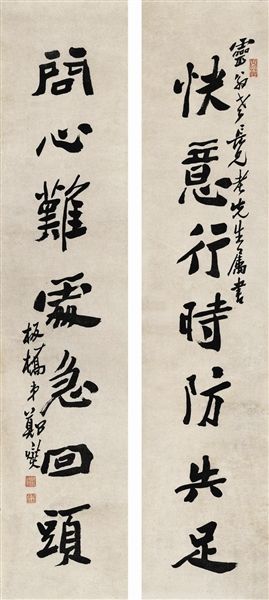 靈翁長兄老先生屬書
快意行時防失足
問心難處急回頭
板橋弟鄭燮